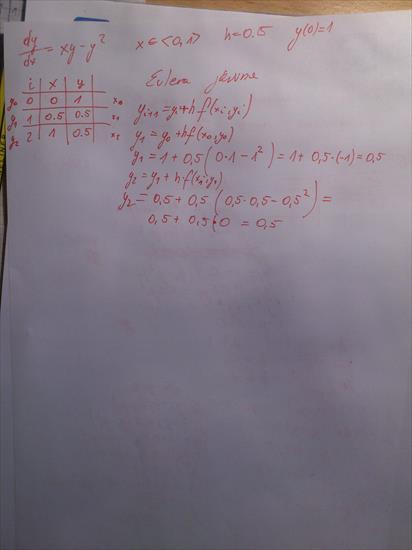 dy/dx = xy - y² x ∈ <0,1> h=0.5 y(0)=1
Eulera jawne
i | x | y
y0 0 | 0 | 1 x0
y1 1 | 0.5 | 0.5 x1
y2 2 | 1 | 0.5 x2
yi+1 = yi + h f(xi, yi)
y1 = y0 + h f(x0, y0)
y1 = 1 + 0,5 (0·1 - 1²) = 1 + 0,5·(-1) = 0,5
y2 = y1 + h·f(x1, y1)
y2 = 0,5 + 0,5 (0,5·0,5 - 0,5²) =
0,5 + 0,5·0 = 0,5